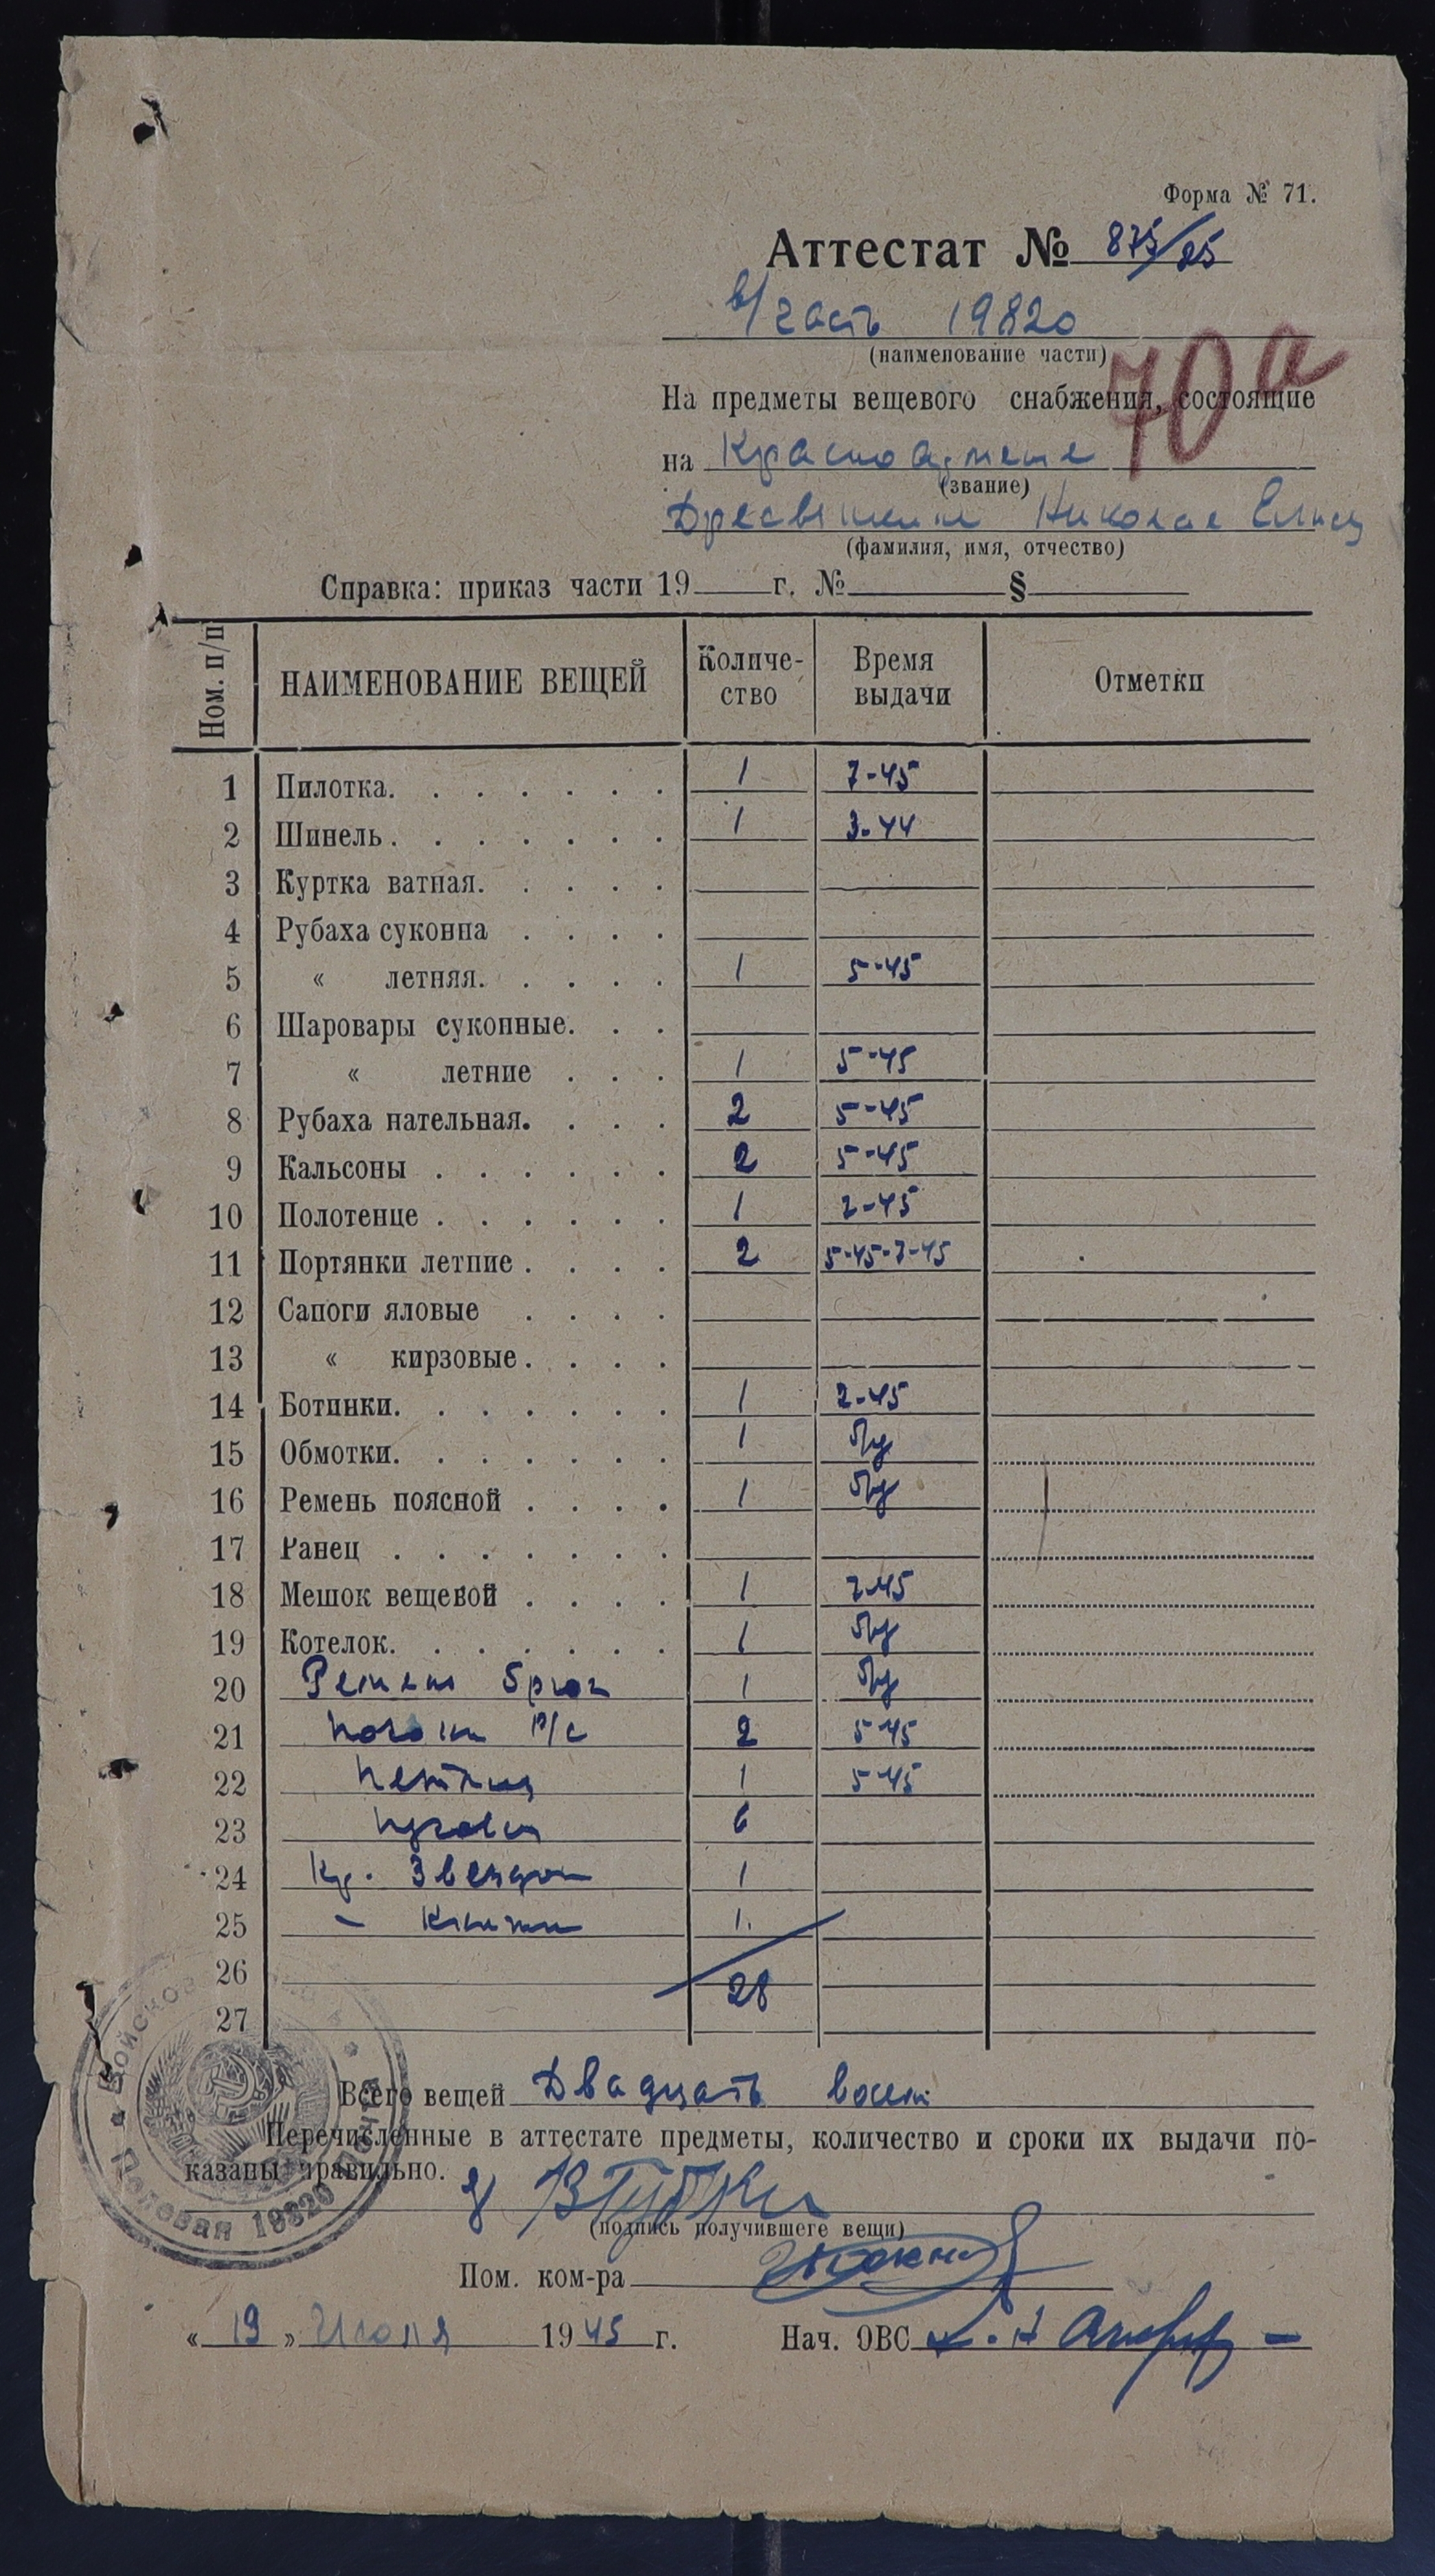 Форма № 71.
Аттестат № 875/25
в/часть 19820
(наименование части)
70а
На предметы вещевого снабжения, состоящие
на Красноармеце
(звание)
Николае
(фамилия, имя, отчество)
Справка: приказ части 19 г. № §
Ном. п/п НАИМЕНОВАНИЕ ВЕЩЕЙ Количество Время выдачи Отметки
1 Пилотка. 1 7-45
2 Шинель. 1 3-44
3 Куртка ватная.
4 Рубаха суконна
5 « летняя. 1 5-45
6 Шаровары суконные.
7 « летние 1 5-45
8 Рубаха нательная. 2 5-45
9 Кальсоны 2 5-45
10 Полотенце 1 2-45
11 Портянки летние 2 5-45-7-45
12 Сапоги яловые
13 « кирзовые
14 Ботинки. 1 2-45
15 Обмотки. 1
16 Ремень поясной 1
17 Ранец
18 Мешок вещевой 1 2-45
19 Котелок. 1
20 Ремень брюч 1
21 Погоны 2 5-45
22 Петлиц 1 5-45
23 Пугови 6
24 Кр. Звездоч 1
25 - Книжки 1.
26 28
27
Всего вещей Двадцать восем
Перечисленные в аттестате предметы, количество и сроки их выдачи по-
казаны правильно.
(подпись получившего вещи)
Пом. ком-ра
« 19 » Июля 1945 г. Нач. ОВС
Войсковая
Полевая Почта 19820